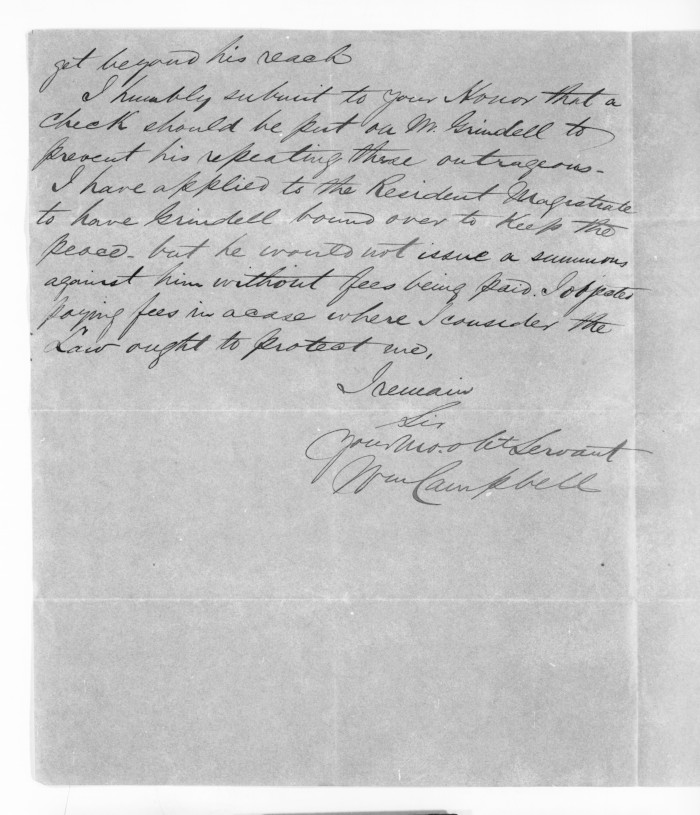 get beyond his reach
I humbly submit to your Honor that a
check should be put on Mr. Grindell to
prevent his repeating these outrageous-
I have applied to the Resident Magistrate
to have Grindell bound over to Keep the
peace- but he would not issue a summons
against him without fees being paid. I objected
paying fees in a case where I consider the
Law ought to protect me.
I remain
Sir
Your Mo. obt Servant
Wm Campbell